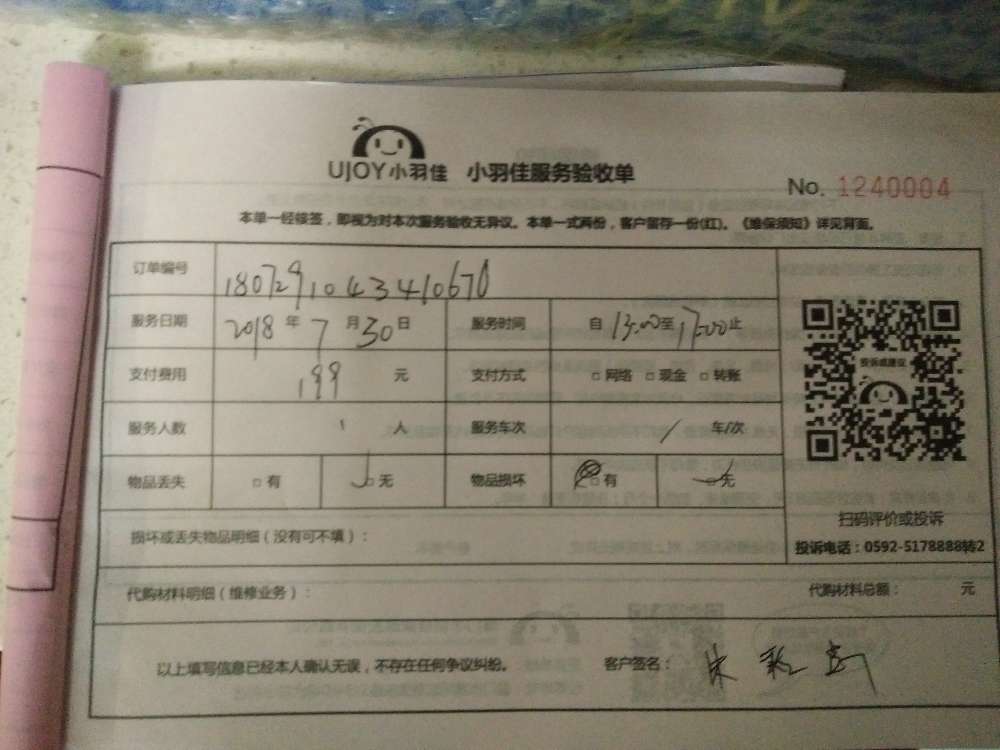 UJOY小羽佳 小羽佳服务验收单
No. 1240004
本单一经核签，即视为对本次服务验收无异议。本单一式两份，客户留存一份(红)。《维保须知》详见背面。
订单编号 180729104341067
服务日期 2018 年 7 月 30 日 服务时间 自 13:00 至 17:00 止
支付费用 199 元 支付方式 □ 网络 □ 现金 □ 转账
服务人数 1 人 服务车次 / 车/次
物品丢失 □ 有 □ 无 物品损坏 □ 有 □ 无
损坏或丢失物品明细（没有可不填）：
代购材料明细（维修业务）： 代购材料总额： 元
以上填写信息已经本人确认无误，不存在任何争议纠纷。 客户签名：
投诉或建议
扫码评价或投诉
投诉电话：0592-5178888转2